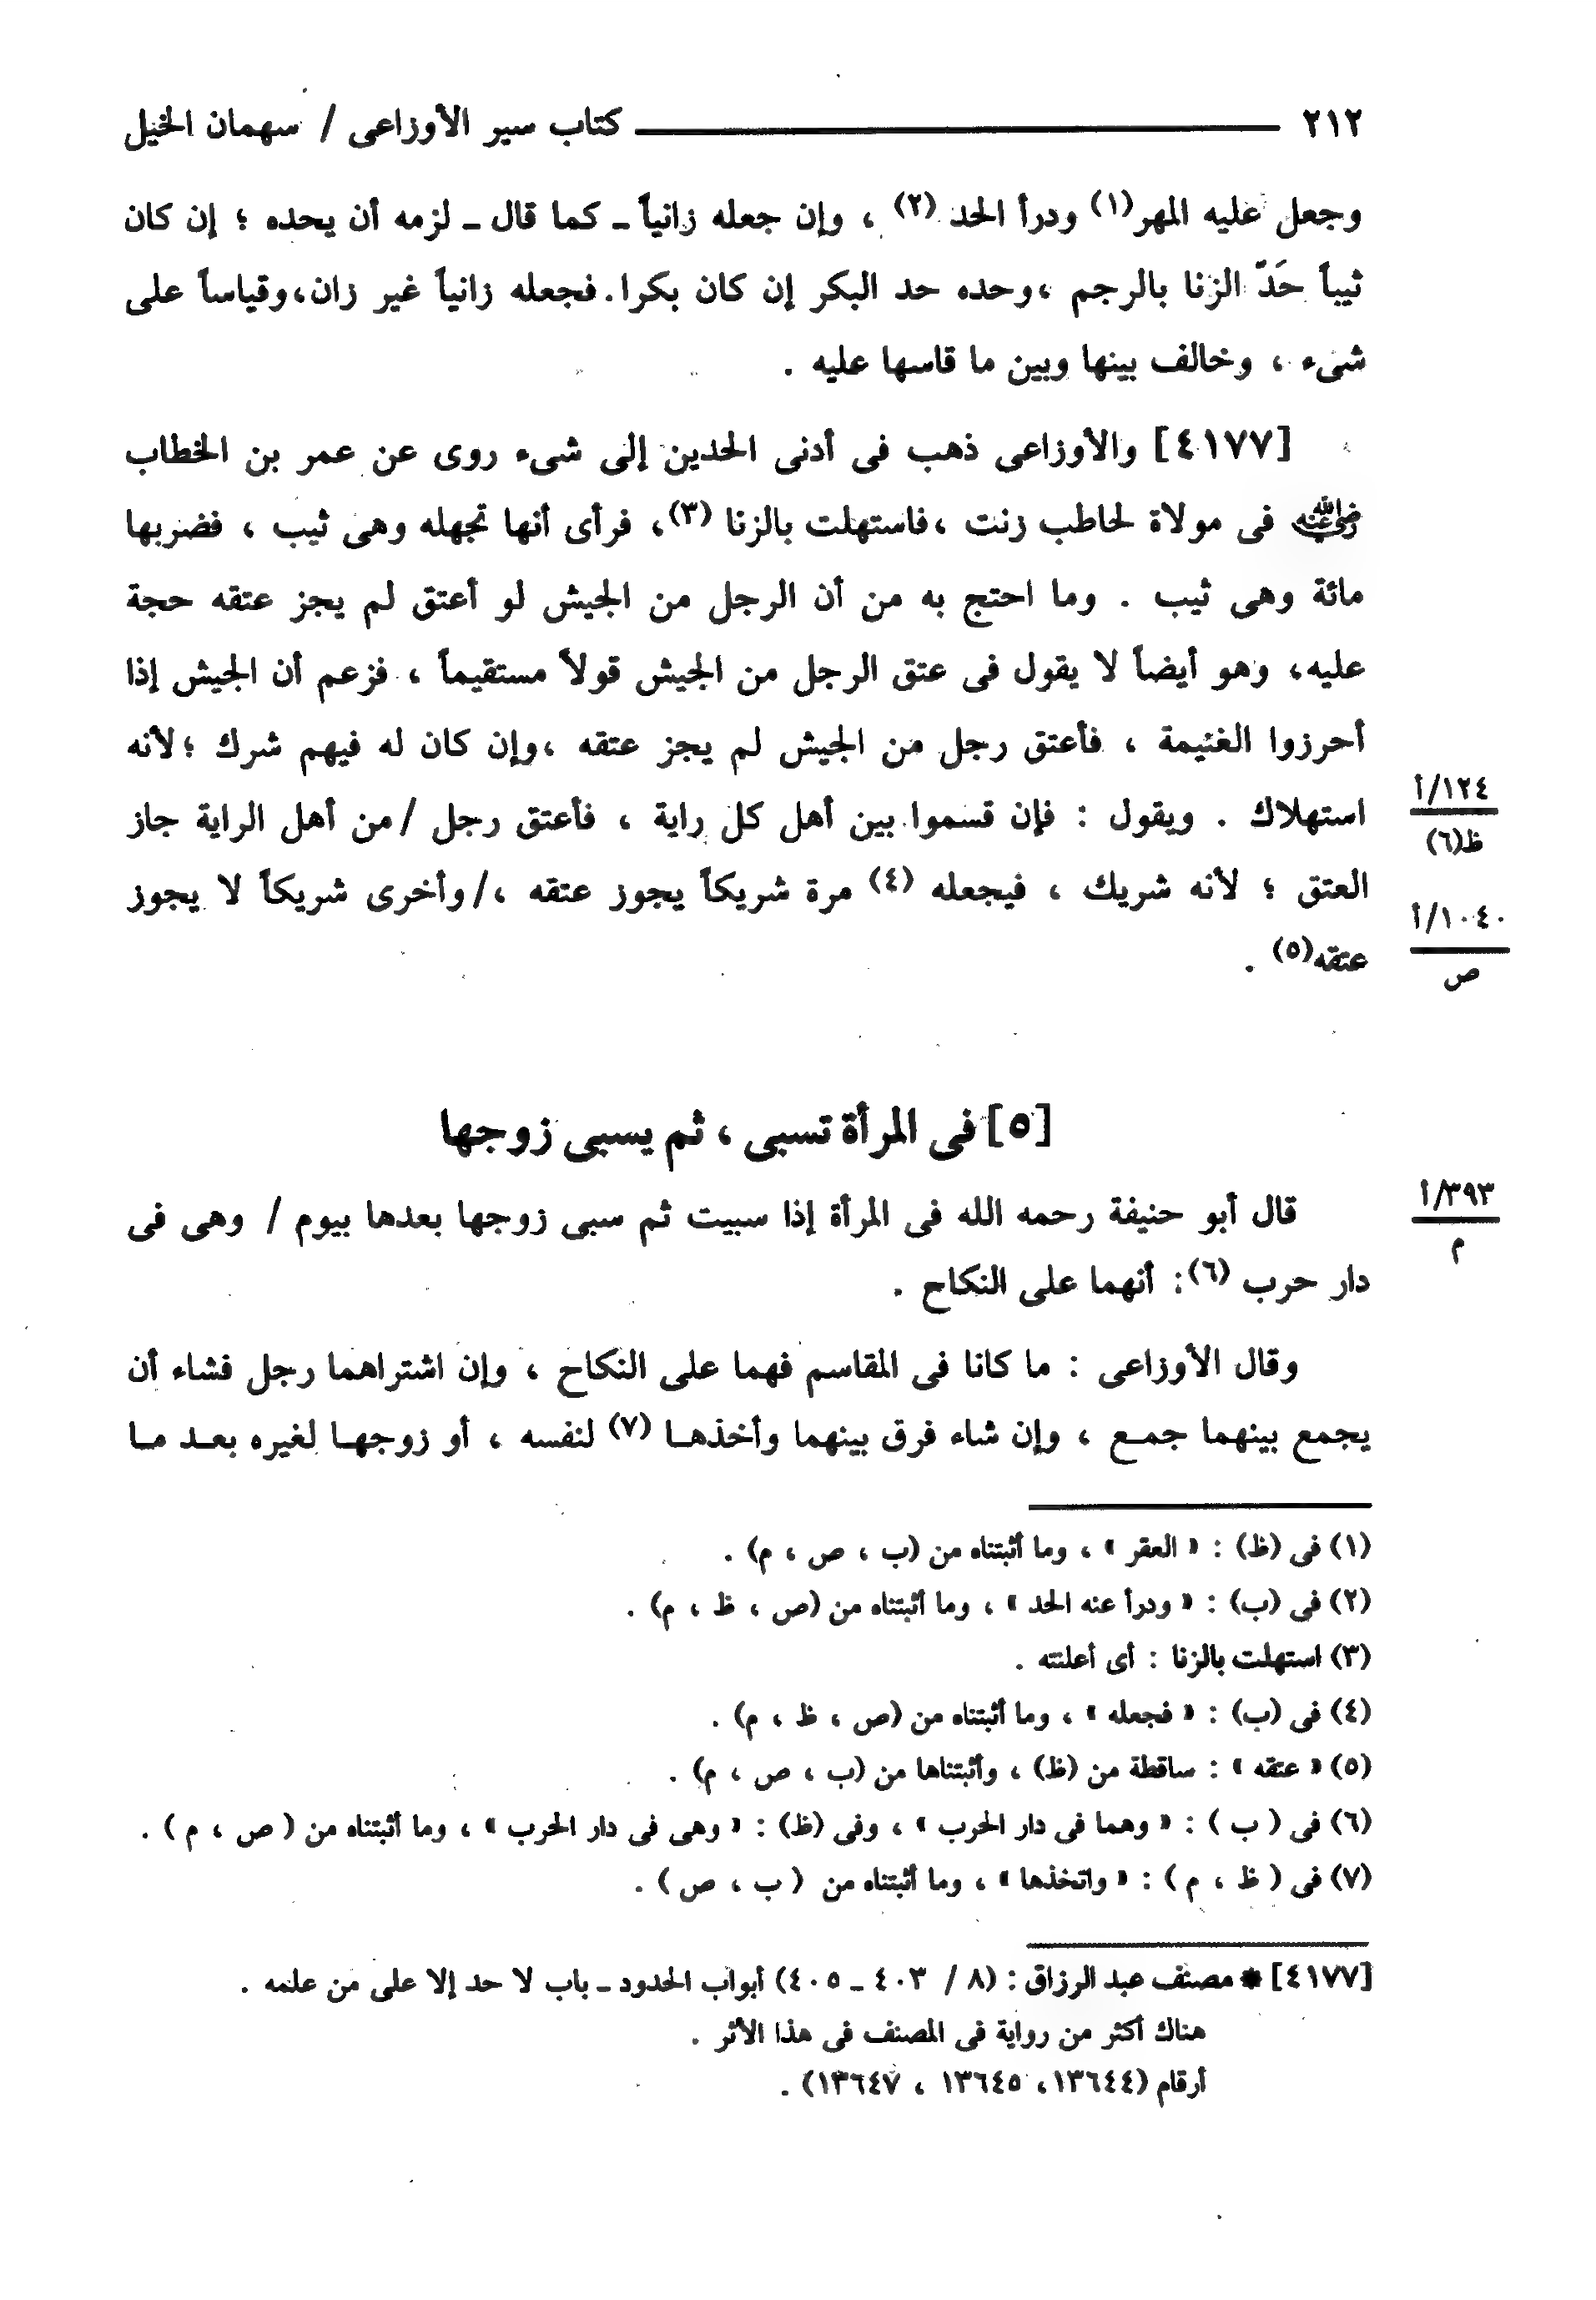 ٢١٢ كتاب سير الأوزاعى / سهمان الخيل
وجعل عليه المهر(١) ودرأ الحد (٢) ، وإن جعله زانياً ـ كما قال ـ لزمه أن يحده ؛ إن كان
ثيباً حَدّ الزنا بالرجم ،وحده حد البكر إن كان بكرا.فجعله زانياً غير زان،وقياساً على
شىء ، وخالف بينها وبين ما قاسها عليه .
[٤١٧٧] والأوزاعى ذهب فى أدنى الحدين إلى شىء روى عن عمر بن الخطاب
رضي الله عنه فى مولاة لحاطب زنت ،فاستهلت بالزنا (٣)، فرأى أنها تجهله وهى ثيب ، فضربها
مائة وهى ثيب . وما احتج به من أن الرجل من الجيش لو أعتق لم يجز عتقه حجة
عليه، وهو أيضاً لا يقول فى عتق الرجل من الجيش قولاً مستقيماً ، فزعم أن الجيش إذا
أحرزوا الغنيمة ، فأعتق رجل من الجيش لم يجز عتقه ،وإن كان له فيهم شرك ؛لأنه
استهلاك . ويقول : فإن قسموا بين أهل كل راية ، فأعتق رجل /من أهل الراية جاز
١٢٤/أ
ظ(٦)
العتق ؛ لأنه شريك ، فيجعله (٤) مرة شريكاً يجوز عتقه ،/وأخرى شريكاً لا يجوز
١٠٤٠/أ
ص
عتقه(٥) .
[٥] فى المرأة تسبى ، ثم يسبى زوجها
قال أبو حنيفة رحمه الله فى المرأة إذا سبيت ثم سبى زوجها بعدها بيوم / وهى فى
٣٩٣/أ
م
دار حرب (٦): أنهما على النكاح .
وقال الأوزاعى : ما كانا فى المقاسم فهما على النكاح ، وإن اشتراهما رجل فشاء أن
يجمع بينهما جمـع ، وإن شاء فرق بينهما وأخذهـا (٧) لنفسه ، أو زوجهـا لغيره بعـد مـا
(١) فى (ظ) : « العقر » ، وما أثبتناه من (ب ، ص ، م) .
(٢) فى (ب) : « ودرأ عنه الحد » ، وما أثبتناه من (ص ، ظ ، م) .
(٣) استهلت بالزنا : أى أعلنته .
(٤) فى (ب) : « فجعله » ، وما أثبتناه من (ص ، ظ ، م) .
(٥) « عتقه » : ساقطة من (ظ) ، وأثبتناها من (ب ، ص ، م) .
(٦) فى ( ب ) : « وهما فى دار الحرب » ، وفى (ظ) : « وهى فى دار الحرب » ، وما أثبتناه من ( ص ، م ) .
(٧) فى ( ظ ، م ) : « واتخذها » ، وما أثبتناه من ( ب ، ص ) .
[٤١٧٧] * مصنف عبد الرزاق : (٨ / ٤٠٣ ـ ٤٠٥) أبواب الحدود ـ باب لا حد إلا على من علمه .
هناك أكثر من رواية فى المصنف فى هذا الأثر .
أرقام (١٣٦٤٤، ١٣٦٤٥ ، ١٣٦٤٧) .